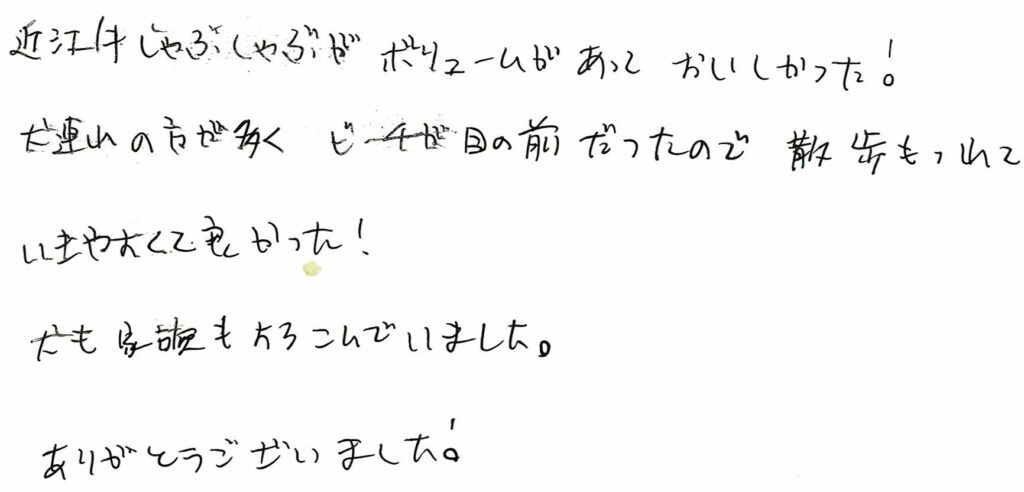 近江牛しゃぶしゃぶが ボリュームがあって おいしかった!
犬連れの方が多く ビーチが目の前だったので 散歩もつれて
いきやすくて良かった!
犬も家族もよろこんでいました。
ありがとうございました!